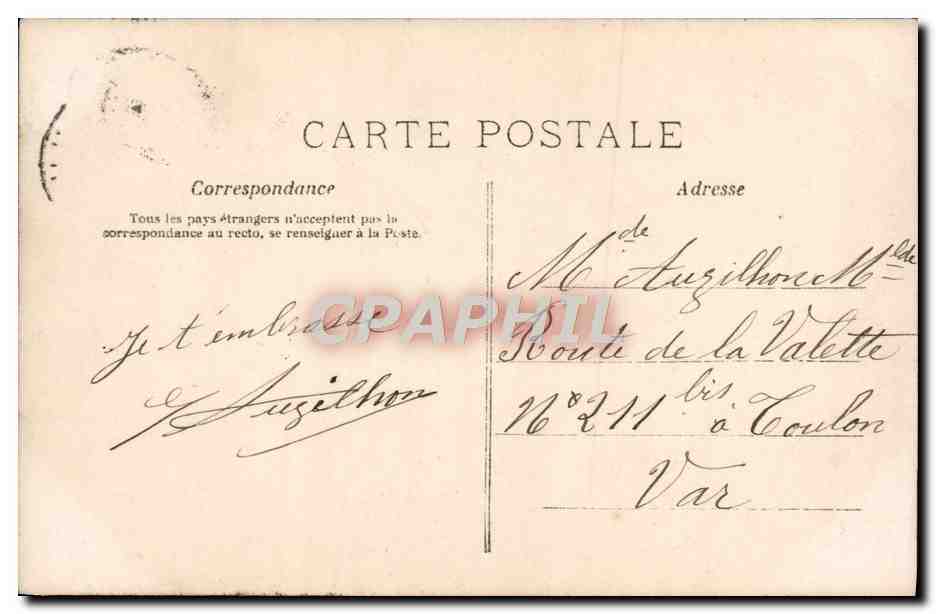 CARTE POSTALE
Correspondance
Tous les pays étrangers n'acceptent pas la
correspondance au recto, se renseigner à la Poste.
Je t'embrasse
Auzilhon
Adresse
Mde Auzilhon Mlde
Route de la Valette
N° 211 bis à Toulon
Var
CPAPHIL